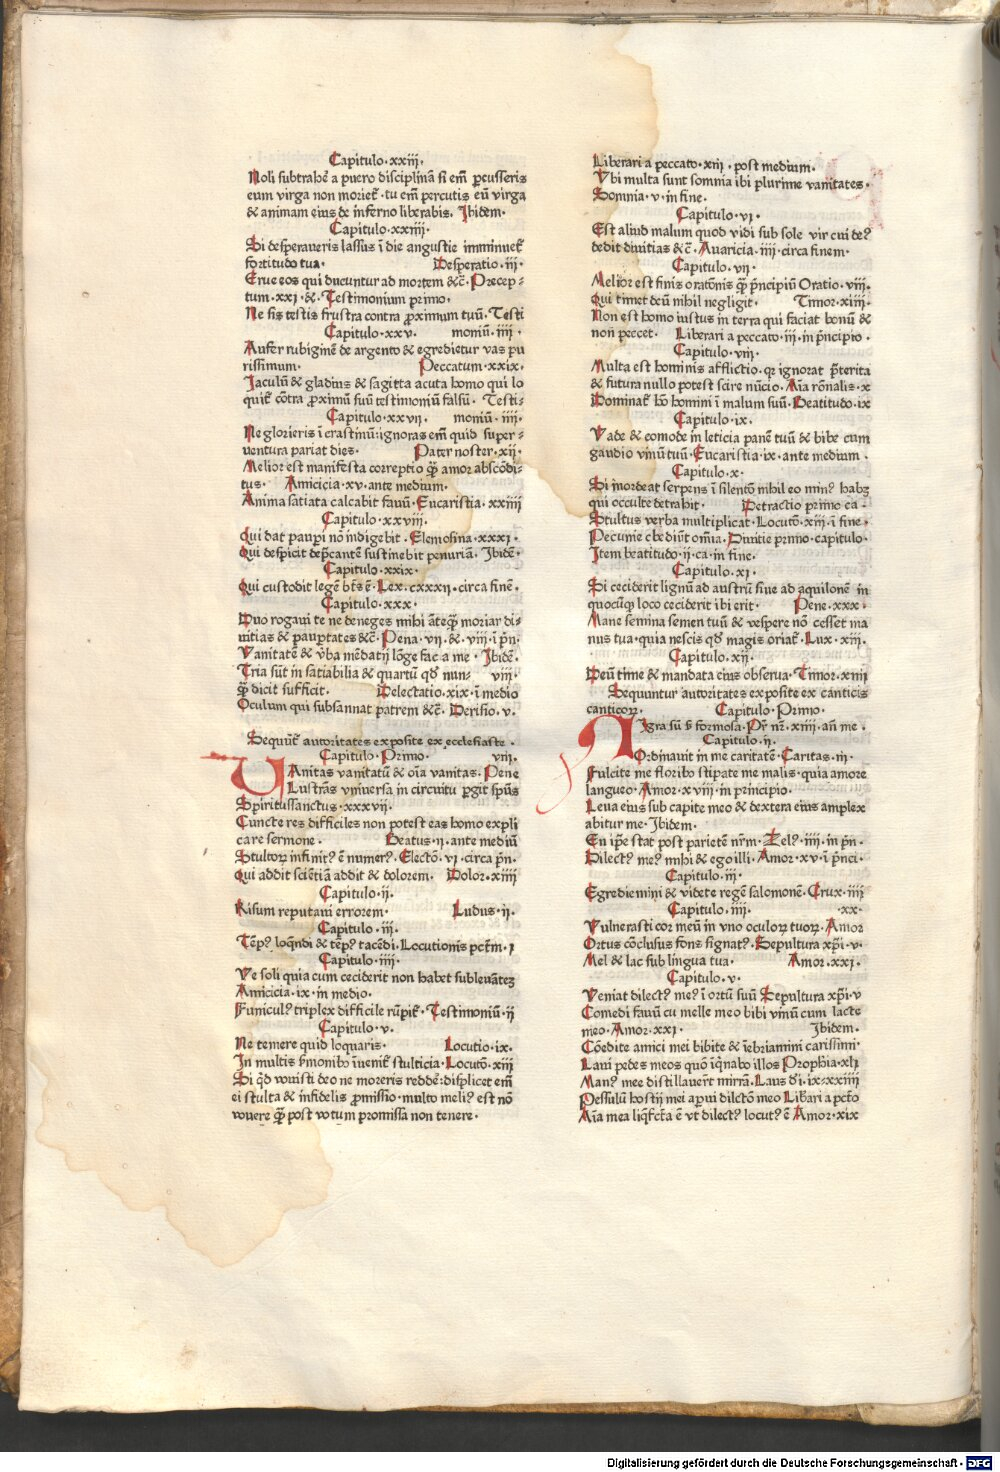 Capitulo·xxiii·
Noli subtrahe̅ a puero disciplina̅ si em̅ ꝑcusseris
eum virga non moriet᷑·tu em̅ percutis eu̅ virga
& animam eius de inferno liberabis. Ibidem·
Capitulo·xxiiii·
Si desperaveris lassus i̅ die angustie imminuet᷑
fortitudo tua· Desperatio·iii·
Erue eos qui ducuntur ad mortem &c̅·Precep⸗
tum·xxi·&·Testimonium primo·
Ne sis testis frustra contra ꝓximum tuu̅·Testi
Capitulo·xxv· moniu̅·iiii·
Aufer rubigine̅ de argento & egredietur vas pu
rissimum· Peccatum·xxix·
Iaculu̅ & gladius & sagitta acuta homo qui lo
quit᷑ co̅tra ꝓximu̅ suu̅ testimoniu̅ falsu̅· Testi-
Capitulo·xxvii· moniu̅·iiii·
Ne glorieris i̅ crastinu̅:ignoras em̅ quid super⸗
uentura pariat dies· Pater noster·xii·
Melior est manifesta correptio q̅ꝫ amor absco̅di⸗
tus· Amicicia·xv·ante medium·
Anima satiata calcabit fauu̅·Eucaristia·xxiiii
Capitulo·xxviii·
Qui dat pauꝑi no̅ indigebit·Elemosina·xxxi·
Qui despicit dep̅cante̅ sustinebit penuria̅·Ibide̅·
Capitulo·xxix·
Qui custodit lege̅ bt̅s e̅·Lex·cxxxii·circa fine̅·
Capitulo·xxx·
Duo rogaui te ne deneges mihi a̅teq̅ꝫ moriar di⸗
uitias & pauꝑtates &c̅·Pena·vii·&·viii·i̅ p̅n·
Vanitate̅ & v̅ba me̅datij lo̅ge fac a me·Ibide̅·
Tria su̅t in satiabilia & quartu̅ qd̅ nun⸗ viii·
q̅ꝫ dicit sufficit· Delectatio·xix·i̅ medio
Oculum qui subsannat patrem &c̅·Derisio·v·
Sequu̅t᷑ autoritates exposite ex ecclesiaste·
Capitulo·Primo· viii·
VAnitas vanitatu̅ & oi̅a vanitas·Pene
Lustra̅s vniuersa in circuitu ꝑgit sp̅us
Spiritussanctus·xxxvii·
Cuncte res difficiles non potest eas homo expli
care sermone· Beatus·ii·ante mediu̅
Stultoꝝ infinit⁹ e̅ numer⁹·Electo̅·vi·circa p̅n·
Qui addit scie̅tia̅ addit & dolorem· Dolor·xiiii
Capitulo·ii·
Risum reputaui errorem· Ludus·ii·
Capitulo·iii·
Te̅p⁹ loq̅ndi & te̅p⁹ tace̅di·Locutionis pct̅m·i
Capitulo·iiii·
Ve soli quia cum ceciderit non habet subleua̅teꝫ
Amicicia·ix·in medio·
Funicul⁹ triplex difficile ru̅pit᷑·Testimoniu̅·ii
Capitulo·v·
Ne temere quid loquaris· Locutio·ix·
In multis s̅monib⁹ i̅uenit᷑ stulticia·Locuto̅·xiii
Si q̅d vouisti deo ne moreris redde̅:displicet em̅
ei stulta & infidelis ꝓmissio·multo meli⁹ est no̅
vouere q̅ꝫ post votum promissa non tenere·
Liberari a peccato·xiii·post medium·
Vbi multa sunt somnia ibi plurime vanitates·
Somnia·v·in fine·
Capitulo·vi·
Est aliud malum quod vidi sub sole vir cui de⁹
dedit diuitias &c̅·Auaricia·iiii·circa finem·
Capitulo·vii·
Melior est finis orato̅nis q̅ꝫ p̅ncipiu̅ Oratio·viii·
Qui timet deu̅ nihil negligit· Timor·xiiii·
Non est homo iustus in terra qui faciat bonu̅ &
non peccet· Liberari a peccato·iii·in p̅ncipio·
Capitulo·viii·
Multa est hominis afflictio·qꝛ ignorat p̅terita
& futura nullo potest scire nu̅cio·Ai̅a ro̅nalis·x
Dominat᷑ ho̅ homini i̅ malum suu̅·Beatitudo·ix
Capitulo·ix·
Vade & comode in leticia pane̅ tuu̅ & bibe cum
gaudio vinu̅ tuu̅·Eucaristia·ix·ante medium·
Capitulo·x·
Si mordeat serpens i̅ silento̅ nihil eo min⁹ habꝫ
qui occulte detrahit· Detractio primo ca·
Stultus verba multiplicat·Locuto̅·xiii·i̅ fine·
Pecunie obediu̅t om̅ia·Diuitie primo·capitulo·
Item beatitudo·ii·ca·in fine·
Capitulo·xi·
Si ceciderit lignu̅ ad austru̅ siue ad aquilone̅ in
quocu̅qꝫ loco ceciderit ibi erit· Pene·xxx·
Mane semina semen tuu̅ & vespere no̅ cesset ma
nus tua·quia nescis qd̅ magis oriat᷑·Lux·xiii·
Capitulo·xii·
Deu̅ time & mandata eius obserua·Timor·xiiii
Sequuntur autoritates exposite ex canticis
canticoꝝ· Capitulo·Primo·
NIgra su̅ s̅ formosa·Pr̅ nr̅·xiiii·an̅ me·
Capitulo·ii·
Ordinauit in me caritate̅·Caritas·iii·
Fulcite me florib⁹ stipate me malis·quia amore
langueo·Amor·xviii·in principio·
Leua eius sub capite meo & dextera eius amplex
abitur me·Ibidem·
En ip̅e stat post pariete̅ nr̅m·Zel⁹·iiii·in p̅n·
Dilect⁹ me⁹ mihi & ego illi·Amor·xv·i̅ p̅nci·
Capitulo·iii·
Egredimini & videte rege̅ salomone̅·Crux·iiii
Capitulo·iiii· ·xx·
Vulnerasti cor meu̅ in vno oculoꝝ tuoꝝ·Amor
Ortus co̅clusus fons signat⁹·Sepultura xp̅i·v·
Mel & lac sub lingua tua· Amor·xxi·
Capitulo·v·
Veniat dilect⁹ me⁹ i̅ ortu̅ suu̅ Sepultura xp̅i·v
Comedi fauu̅ cu melle meo bibi vinu̅ cum lacte
meo·Amor·xxi· Ibidem·
Co̅edite amici mei bibite & i̅ebriamini carissimi·
Laui pedes meos quo̅ iq̅nabo illos Prophia·xli
Man⁹ mee distillauer̅t mirra̅·Laus d̅i·ix·xxiiii
Pessulu̅ hostij mei aꝑui dilcto̅ meo Lib̅ari a pct̅o
Ai̅a mea liq̅fct̅a e̅ vt dilect⁹ locut⁹ e̅ Amor·xix
Digitalisierung gefördert durch die Deutsche Forschungsgemeinschaft - DFG